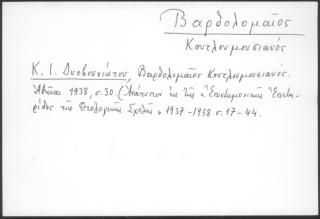 Βαρθολομαῖος
Κουτλουμουσιανός
Κ. Ι. Δυοβουνιώτου, Βαρθολομαῖος Κουτλουμουσιανός.
Ἀθῆναι 1938, σ. 30. (Ἀνάτυπον ἐκ τῆς «Ἐπιστημονικῆς Ἐπετη-
ρίδος τῆς Θεολογικῆς Σχολῆς» 1937-1938 σ. 17-44.